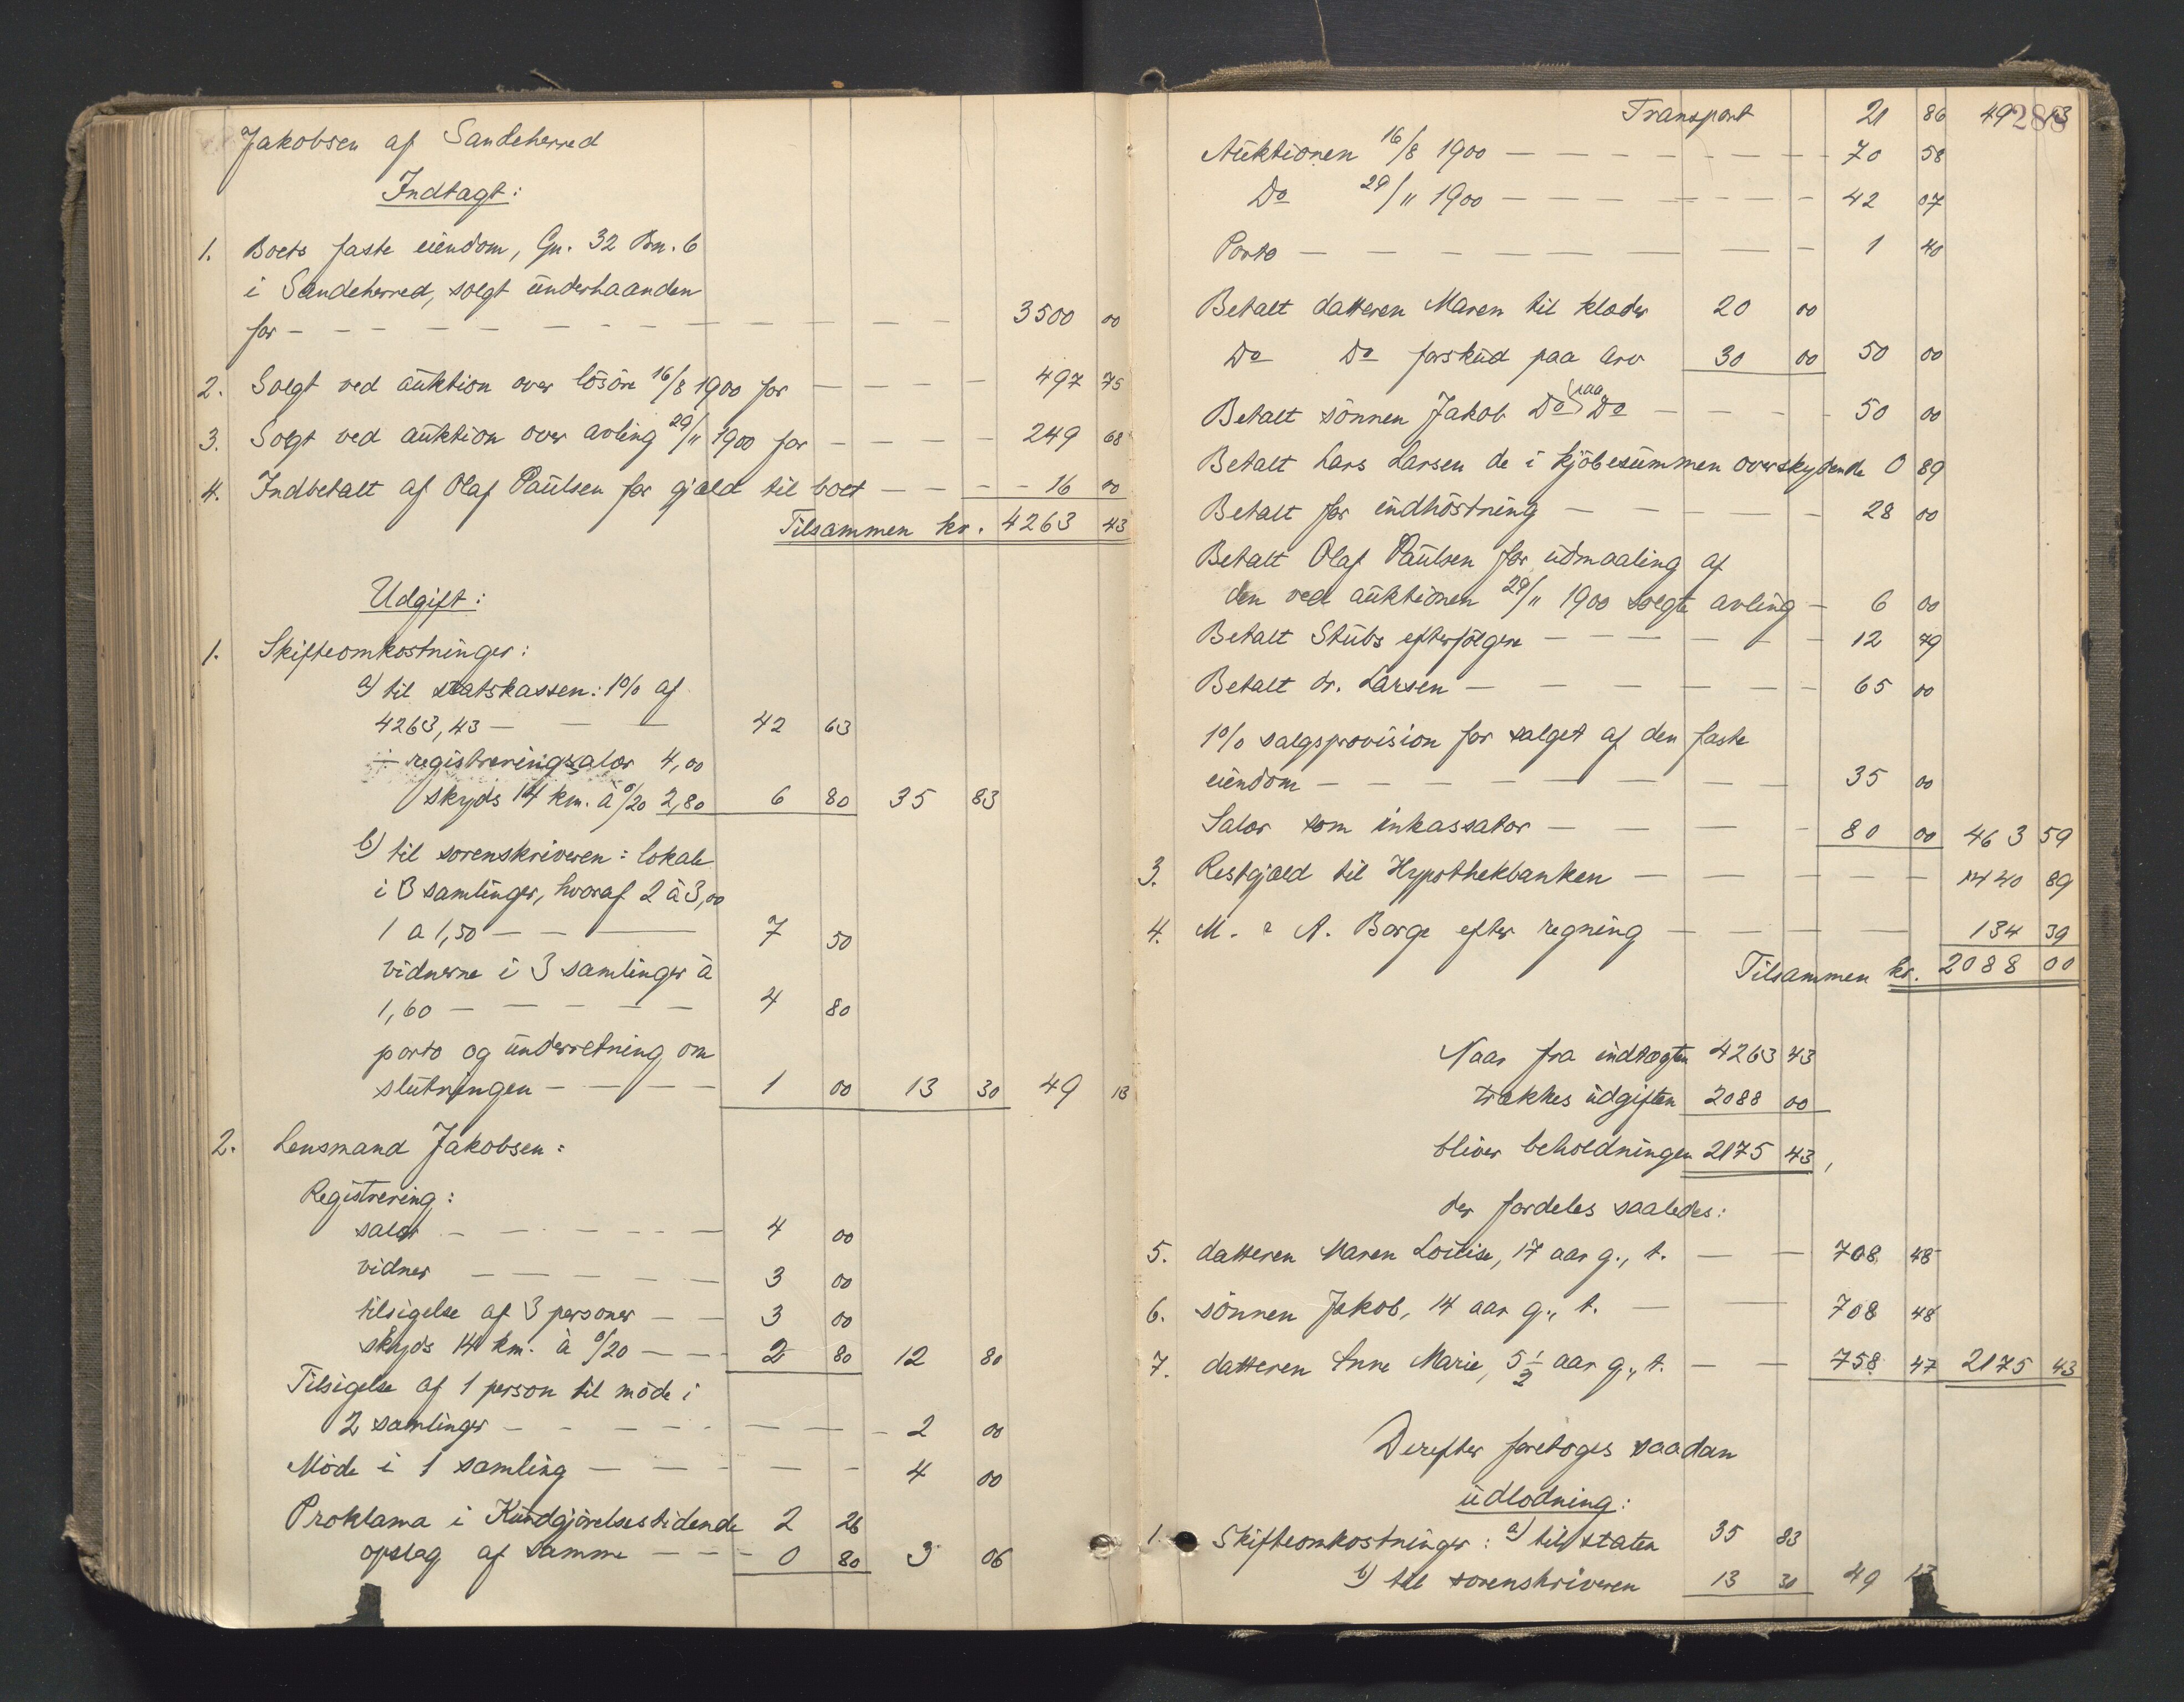 Jakobsen af Sandeherred
Indtagt:
1. Boets faste eiendom, Gn. 32 Bn. 6
i Sandeherred, solgt underhaanden
for - - - - - - - - 3500 00
2. Solgt ved auktion over lösöre 16/8 1900 for - - - - 497 75
3. Solgt ved auktion over avling 29/11 1900 for - - - - 249 68
4. Indbetalt af Olaf Paulsen for gjæld til boet - - - - 16 00
Tilsammen kr. 4263 43
Udgift:
1. Skifteomkostninger:
a) til statskassen: 1% af
4263,43 - - - 42 63
÷ registreringsalær 4,00
skyds 14 km. à 0/20 2,80 6 80 35 83
b) til sorenskriveren: lokale
i 3 samlinger, hvoraf 2 à 3,00
1 a 1,50 - - - 7 50
vidnerne i 3 samlinger à
1,60 - - - - - 4 80
porto og underretning om
slutningen - - - - 1 00 13 30 49 13
2. Lensmand Jakobsen:
Registrering:
salær - - - - - 4 00
vidner - - - - - 3 00
tilsigelse af 3 personer - - 3 00
skyds 14 km. à 0/20 - - - 2 80 12 80
Tilsigelse af 1 person til möde i
2 samlinger - - - - - - - - 2 00
Möde i 1 samling - - - - - - 4 00
Proklama i Kundgjörelsestidende 2 26
opslag af samme - - - 0 80 3 06
288
Transport 21 86 49 13
Auktionen 16/8 1900 - - - - - - - 70 58
Do 29/11 1900 - - - - - - - 42 07
Porto - - - - - - - - 1 40
Betalt datteren Maren til klæder 20 00
Do Do forskud paa arv 30 00 50 00
Betalt sönnen Jakob Do paa Do - - - - 50 00
Betalt Lars Larsen de i kjöbesummen overskydende 0 89
Betalt for indhöstning - - - - - 28 00
Betalt Olaf Paulsen for udmaaling af
den ved auktionen 29/11 1900 solgte avling - 6 00
Betalt Stubs efterfölgere - - - - - - 12 79
Betalt dr. Larsen - - - - - - 65 00
1% salgsprovision for salget af den faste
eiendom - - - - - - - - 35 00
Salær som inkassator - - - - 80 00 463 59
3. Restgjæld til Hypothekbanken - - - - - - 1440 89
4. M. & A. Borge efter regning - - - - - 134 39
Tilsammen kr. 2088 00
Naar fra indtægten 4263 43
trækkes udgiften 2088 00
bliver beholdningen 2175 43,
der fordeles saaledes:
5. datteren Maren Louise, 17 aar g., t. - - 708 48
6. sönnen Jakob, 14 aar g., t. - - 708 48
7. datteren Anne Marie, 5 1/2 aar g., t. - - 758 47 2175 43
Derefter foretoges saadan
udlodning:
1. Skifteomkostninger: a) til staten 35 83
b) til sorenskriveren 13 30 49 13